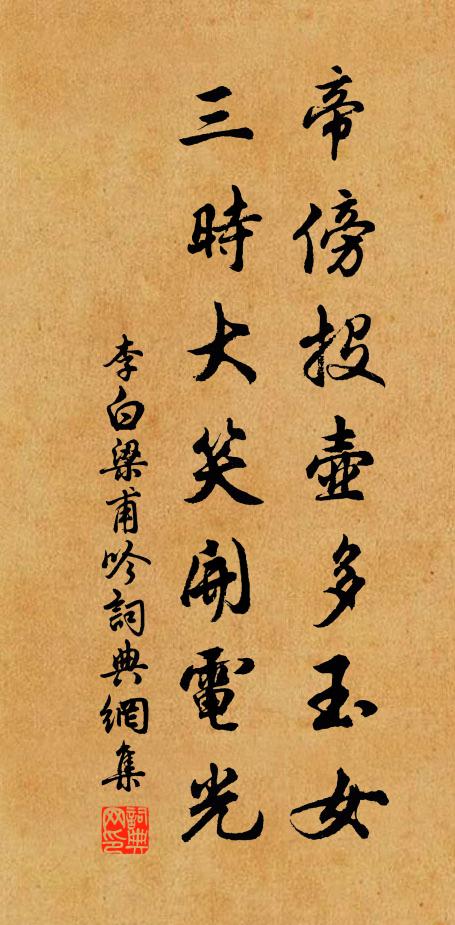 帝傍投壺多玉女
三時大笑開電光
李白梁甫吟詞典網集
詞典网印